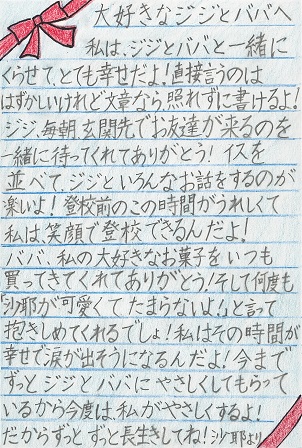 大好きなジジとババへ
私は、ジジとババと一緒に
くらせて、とても幸せだよ!直接言うのは
はずかしいけれど文章なら、照れずに書けるよ!
ジジ、毎朝、玄関先でお友達が来るのを
一緒に待ってくれてありがとう!イスを
並べて、ジジといろんなお話をするのが
楽いよ!登校前のこの時間がうれしくて
私は、笑顔で登校できるんだよ!
ババ、私の大好きなお菓子をいつも
買ってきてくれてありがとう!そして何度も
「沙耶が可愛くてたまらないよ!」と言って
抱きしめてくれるでしょ!私はその時間が
幸せで涙が出そうになるんだよ!今まで
ずっとジジとババにやさしくしてもらって
いるから今度は私がやさしくするよ!
だからずっとずっと長生きしてね!沙耶より